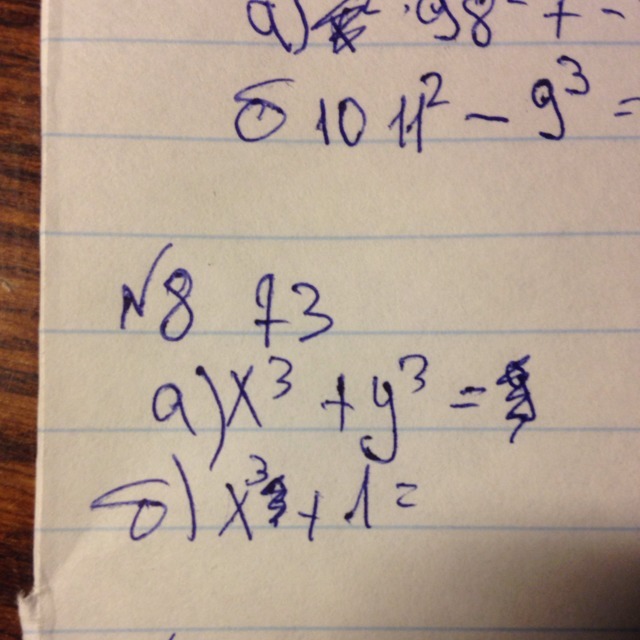 а) 98² + -
б 10 11² - 9³ =
№ 8 73
а) x³ + y³ =
б) x³ + 1 =